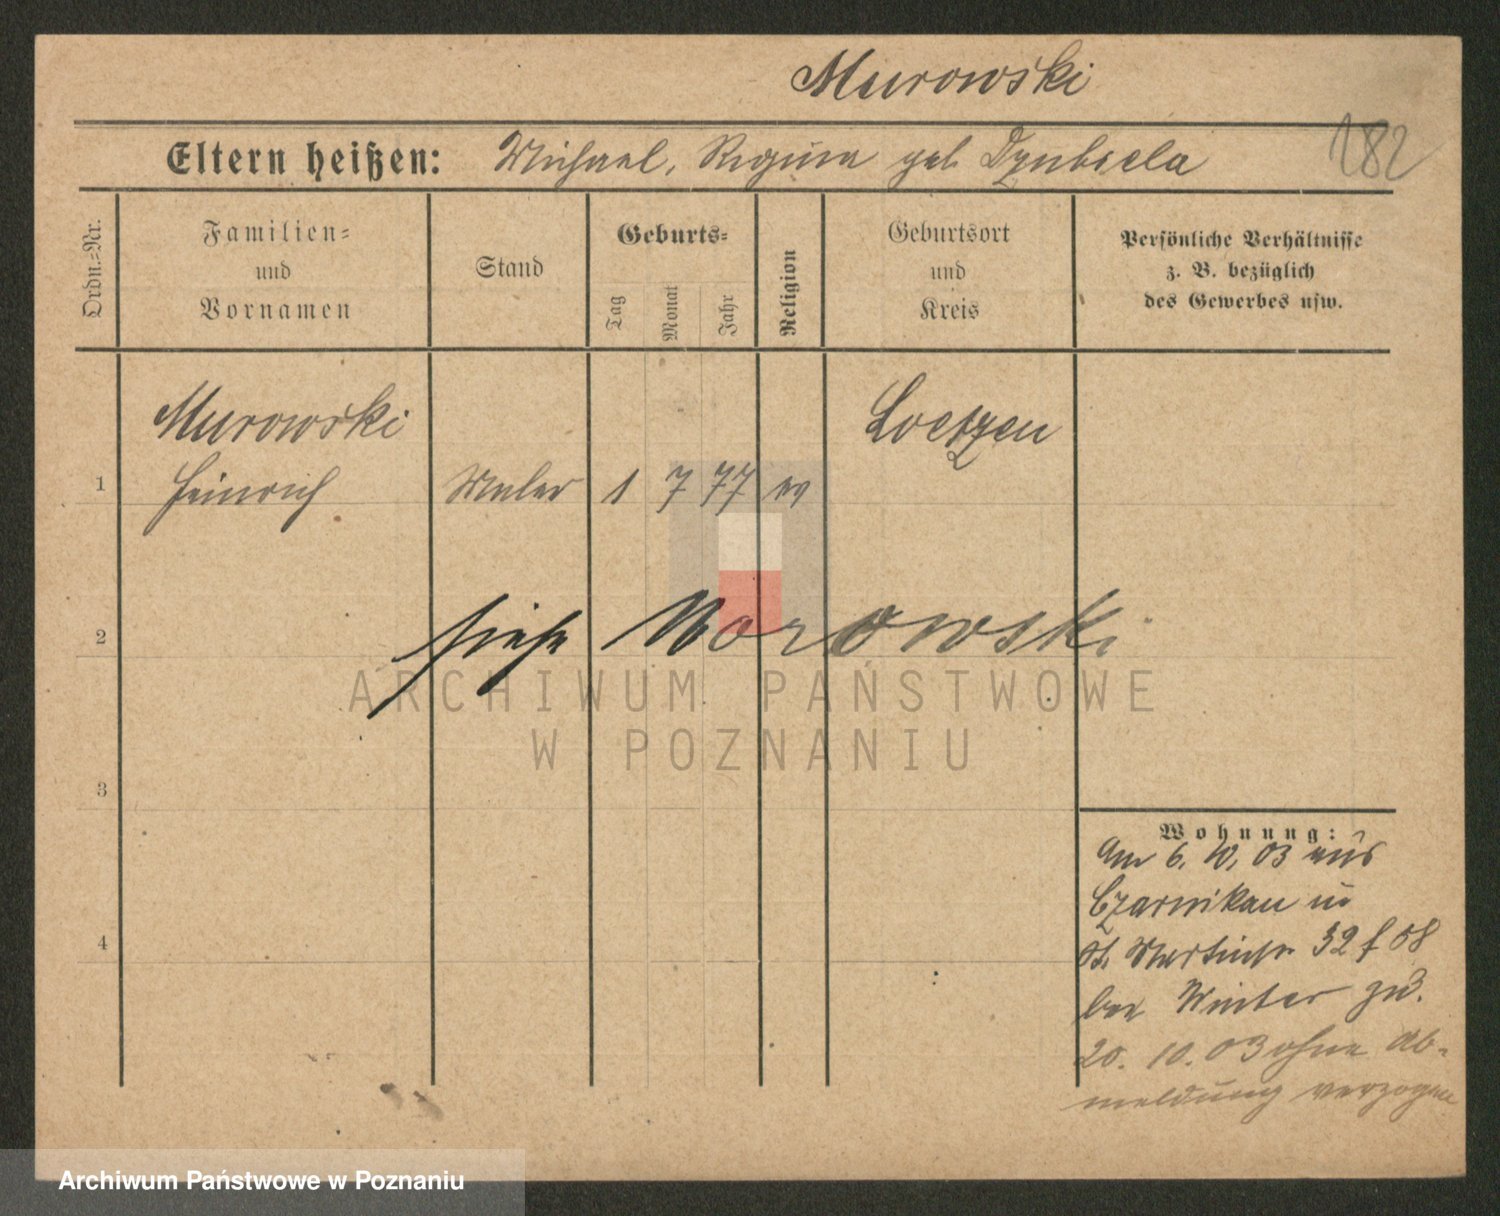 Murowski
182
Eltern heißen: Michael, Regina geb Dzubiela
Ordn.=Nr.
Familien=
und
Vornamen
Stand
Geburts=
Tag
Monat
Jahr
Religion
Geburtsort
und
Kreis
Persönliche Verhältnisse
z. B. bezüglich
des Gewerbes usw.
Murowski Loetzen
1 Heinrich Maler 1 7 77 ev
2 siehe Morowski
ARCHIWUM PAŃSTWOWE
W POZNANIU
3
Wohnung:
Am 6. 10. 03 aus
Czarnikau in
4
St. Martinstr 32
bei Winter zu.
20. 10. 03 ohne Ab-
meldung verzogen
Archiwum Państwowe w Poznaniu